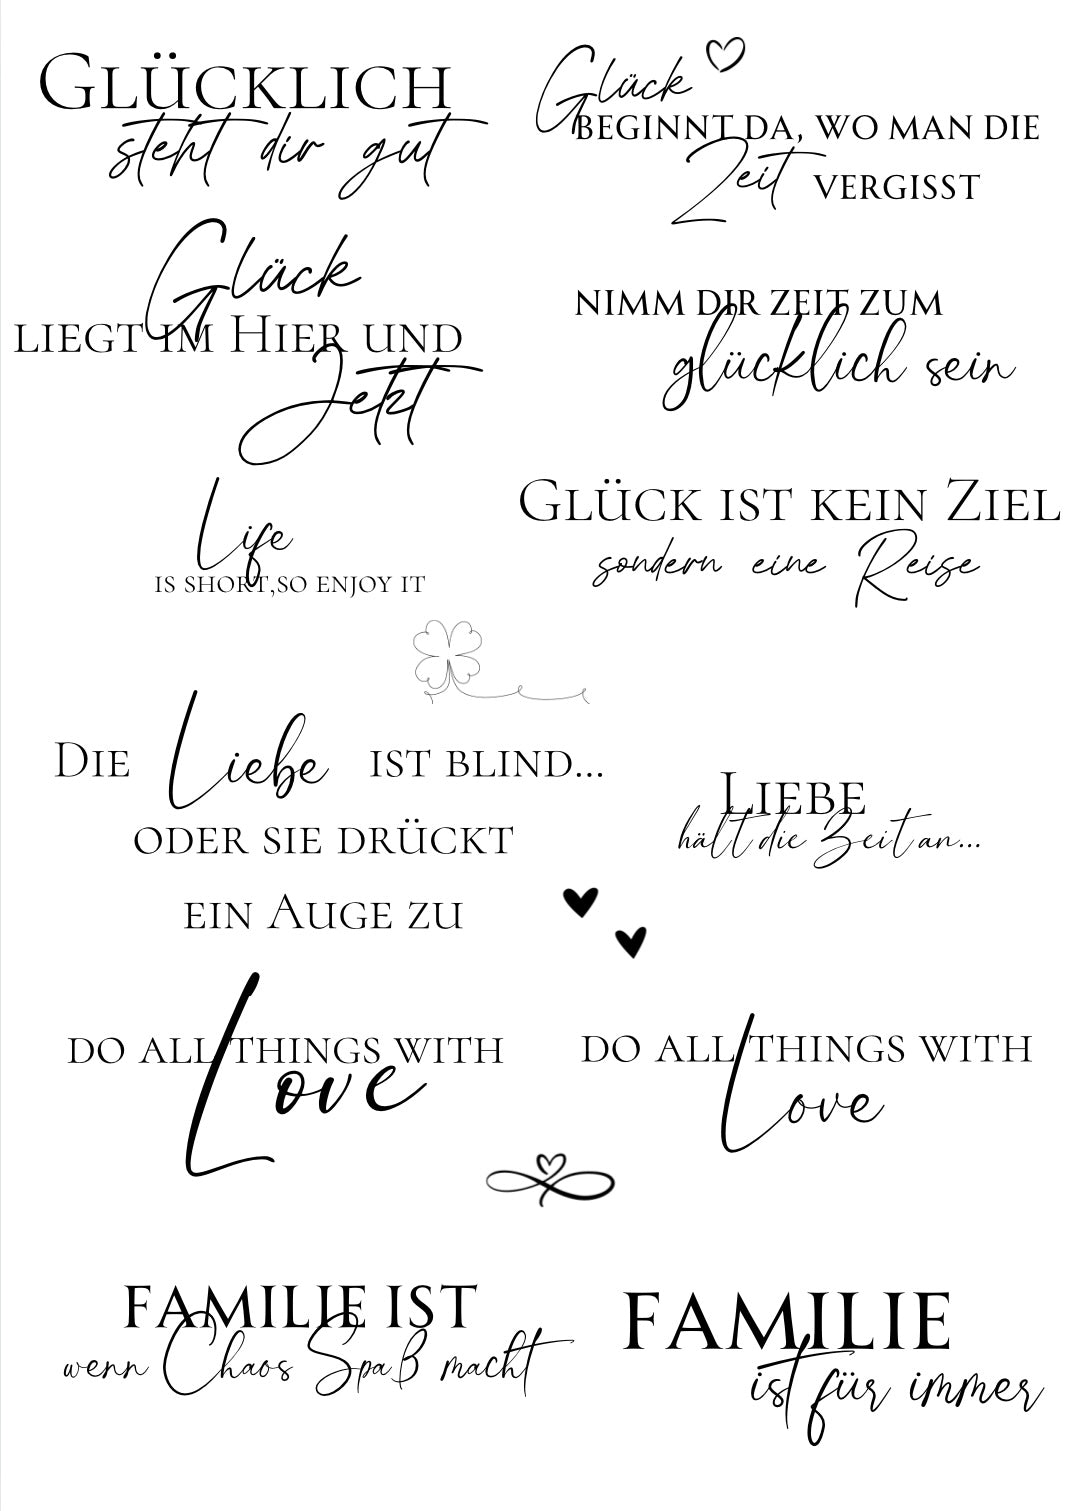 GLÜCKLICH
steht dir gut
Glück
BEGINNT DA, WO MAN DIE
Zeit VERGISST
Glück
LIEGT IM HIER UND
Jetzt
NIMM DIR ZEIT ZUM
glücklich sein
Life
IS SHORT,SO ENJOY IT
GLÜCK IST KEIN ZIEL
sondern eine Reise
DIE Liebe IST BLIND...
ODER SIE DRÜCKT
EIN AUGE ZU
LIEBE
hält die Zeit an...
DO ALL THINGS WITH
Love
DO ALL THINGS WITH
Love
FAMILIE IST
wenn Chaos Spaß macht
FAMILIE
ist für immer